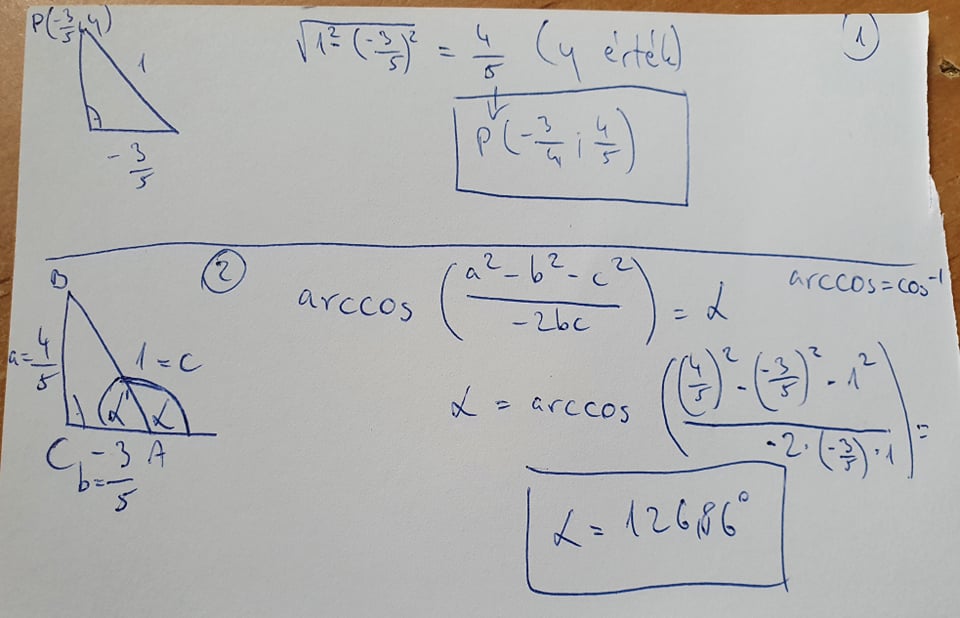 P(-3/5, y)
1
-3/5
√(1² - (-3/5)²) = 4/5 (y érték)
↓
P(-3/4 ; 4/5)
1
2
B
a = 4/5
1 = c
α' α
C -3 A
b = -3/5
arccos ((a² - b² - c²)/(-2bc)) = α
arccos = cos⁻¹
α = arccos (((4/5)² - (-3/5)² - 1²)/(-2·(-3/5)·1)) =
α = 126,86°